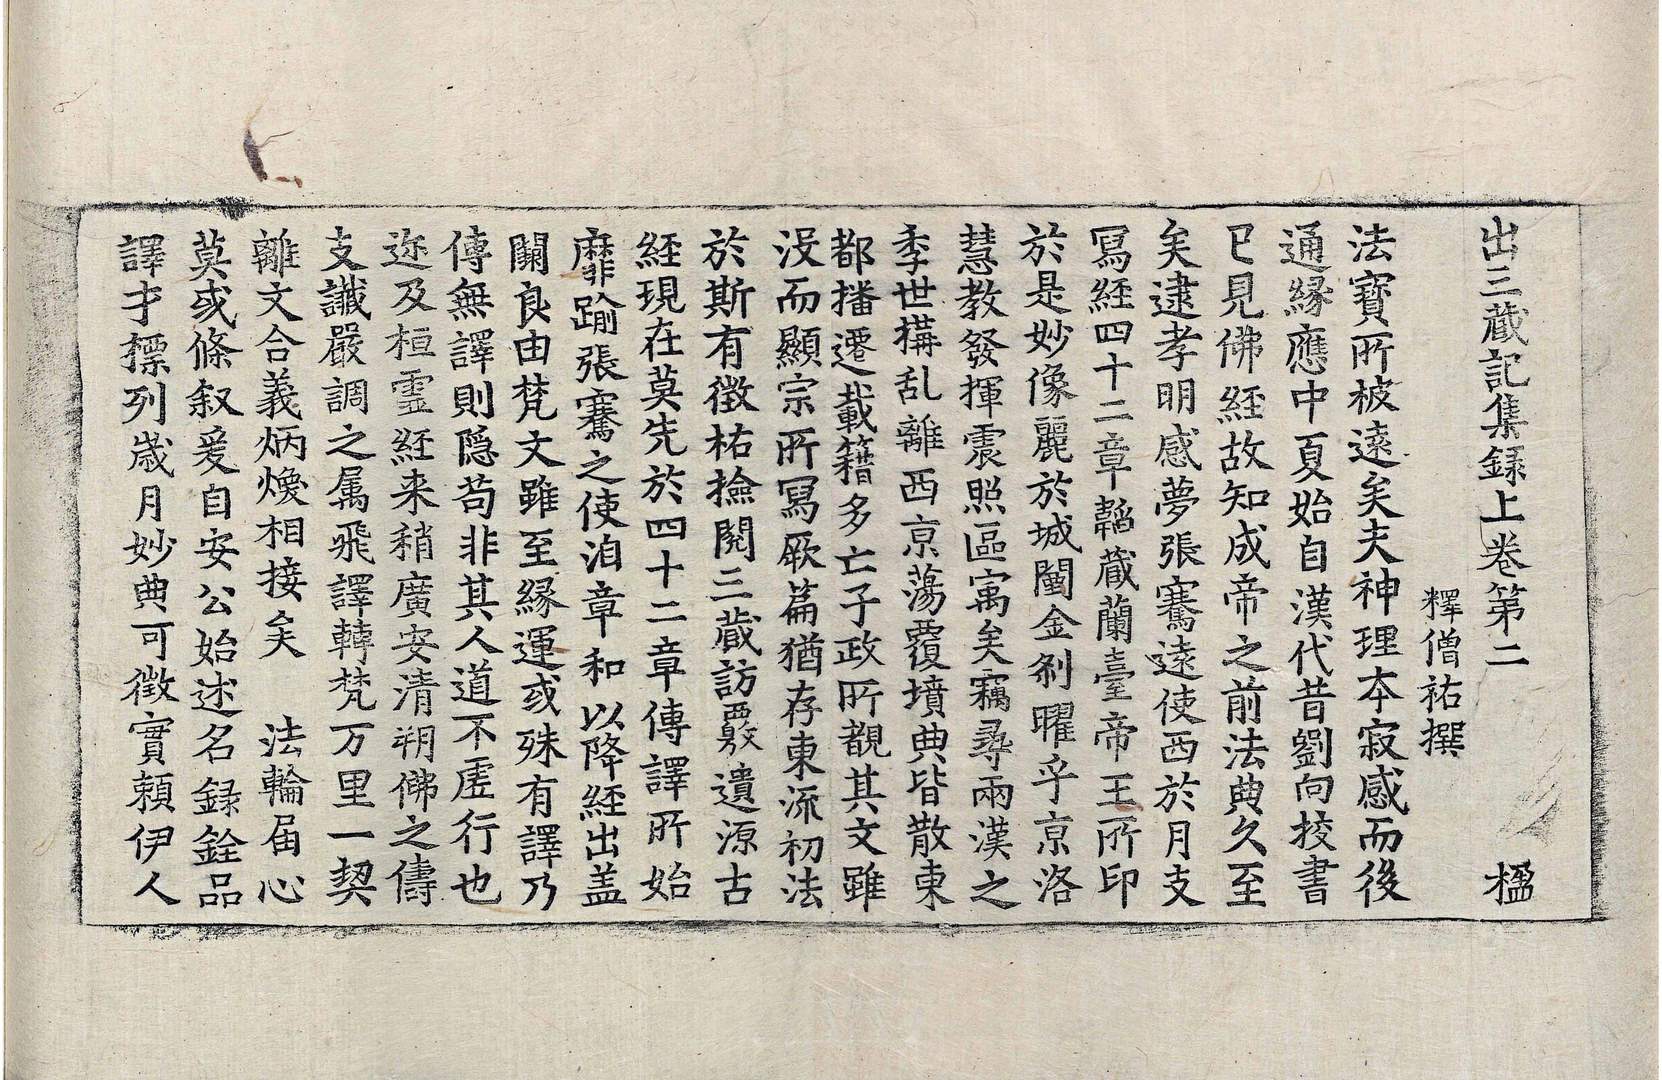 出三蔵記集録上卷第二 楹
釋僧祐撰
法寶所被遠矣夫神理本寂感而後
通縁應中夏始自漢代昔劉向挍書
已見佛經故知成帝之前法典久至
矣逮孝明感夢張騫遠使西於月支
寫經四十二章韜蔵蘭臺帝王所印
於是妙像麗於城闉金刹曜乎京洛
慧教發揮震照區寓矣竊尋兩漢之
季世構乱離西京蕩覆墳典皆散東
都播遷載籍多亡子政所覩其文雖
没而顯宗所寫厥篇猶存東流初法
於斯有徴祐撿閲三蔵訪覈遺源古
經現在莫先於四十二章傳譯所始
靡踰張騫之使洎章和以降經出盖
闌良由梵文雖至縁運或殊有譯乃
傳無譯則隠苟非其人道不虚行也
迩及桓霊經来稍廣安清朔佛之儔
支讖嚴調之属飛譯轉梵万里一契
離文合義炳煥相接矣 法輪届心
莫或條叙爰自安公始述名録銓品
譯才標列歳月妙典可徴實頼伊人